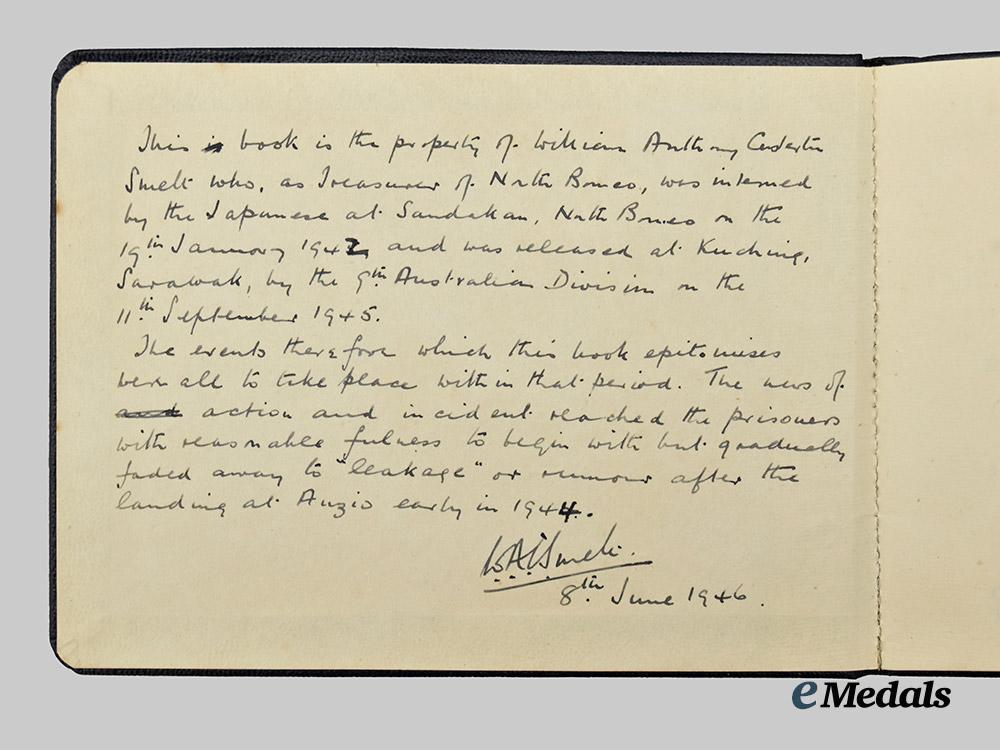 This is book is the property of William Anthony Cuthbertson
Smelt who, as Treasurer of North Borneo, was interned
by the Japanese at Sandakan, North Borneo on the
19th January 1942 and was released at Kuching,
Sarawak, by the 9th Australian Division on the
11th September 1945.
The events therefore which this book epitomises
were all to take place within that period. The news of
and action and incident reached the prisoners
with reasonable fulness to begin with but gradually
faded away to "leakage" or rumour after the
landing at Anzio early in 1944.
W.A.C. Smelt.
8th June 1946.
eMedals